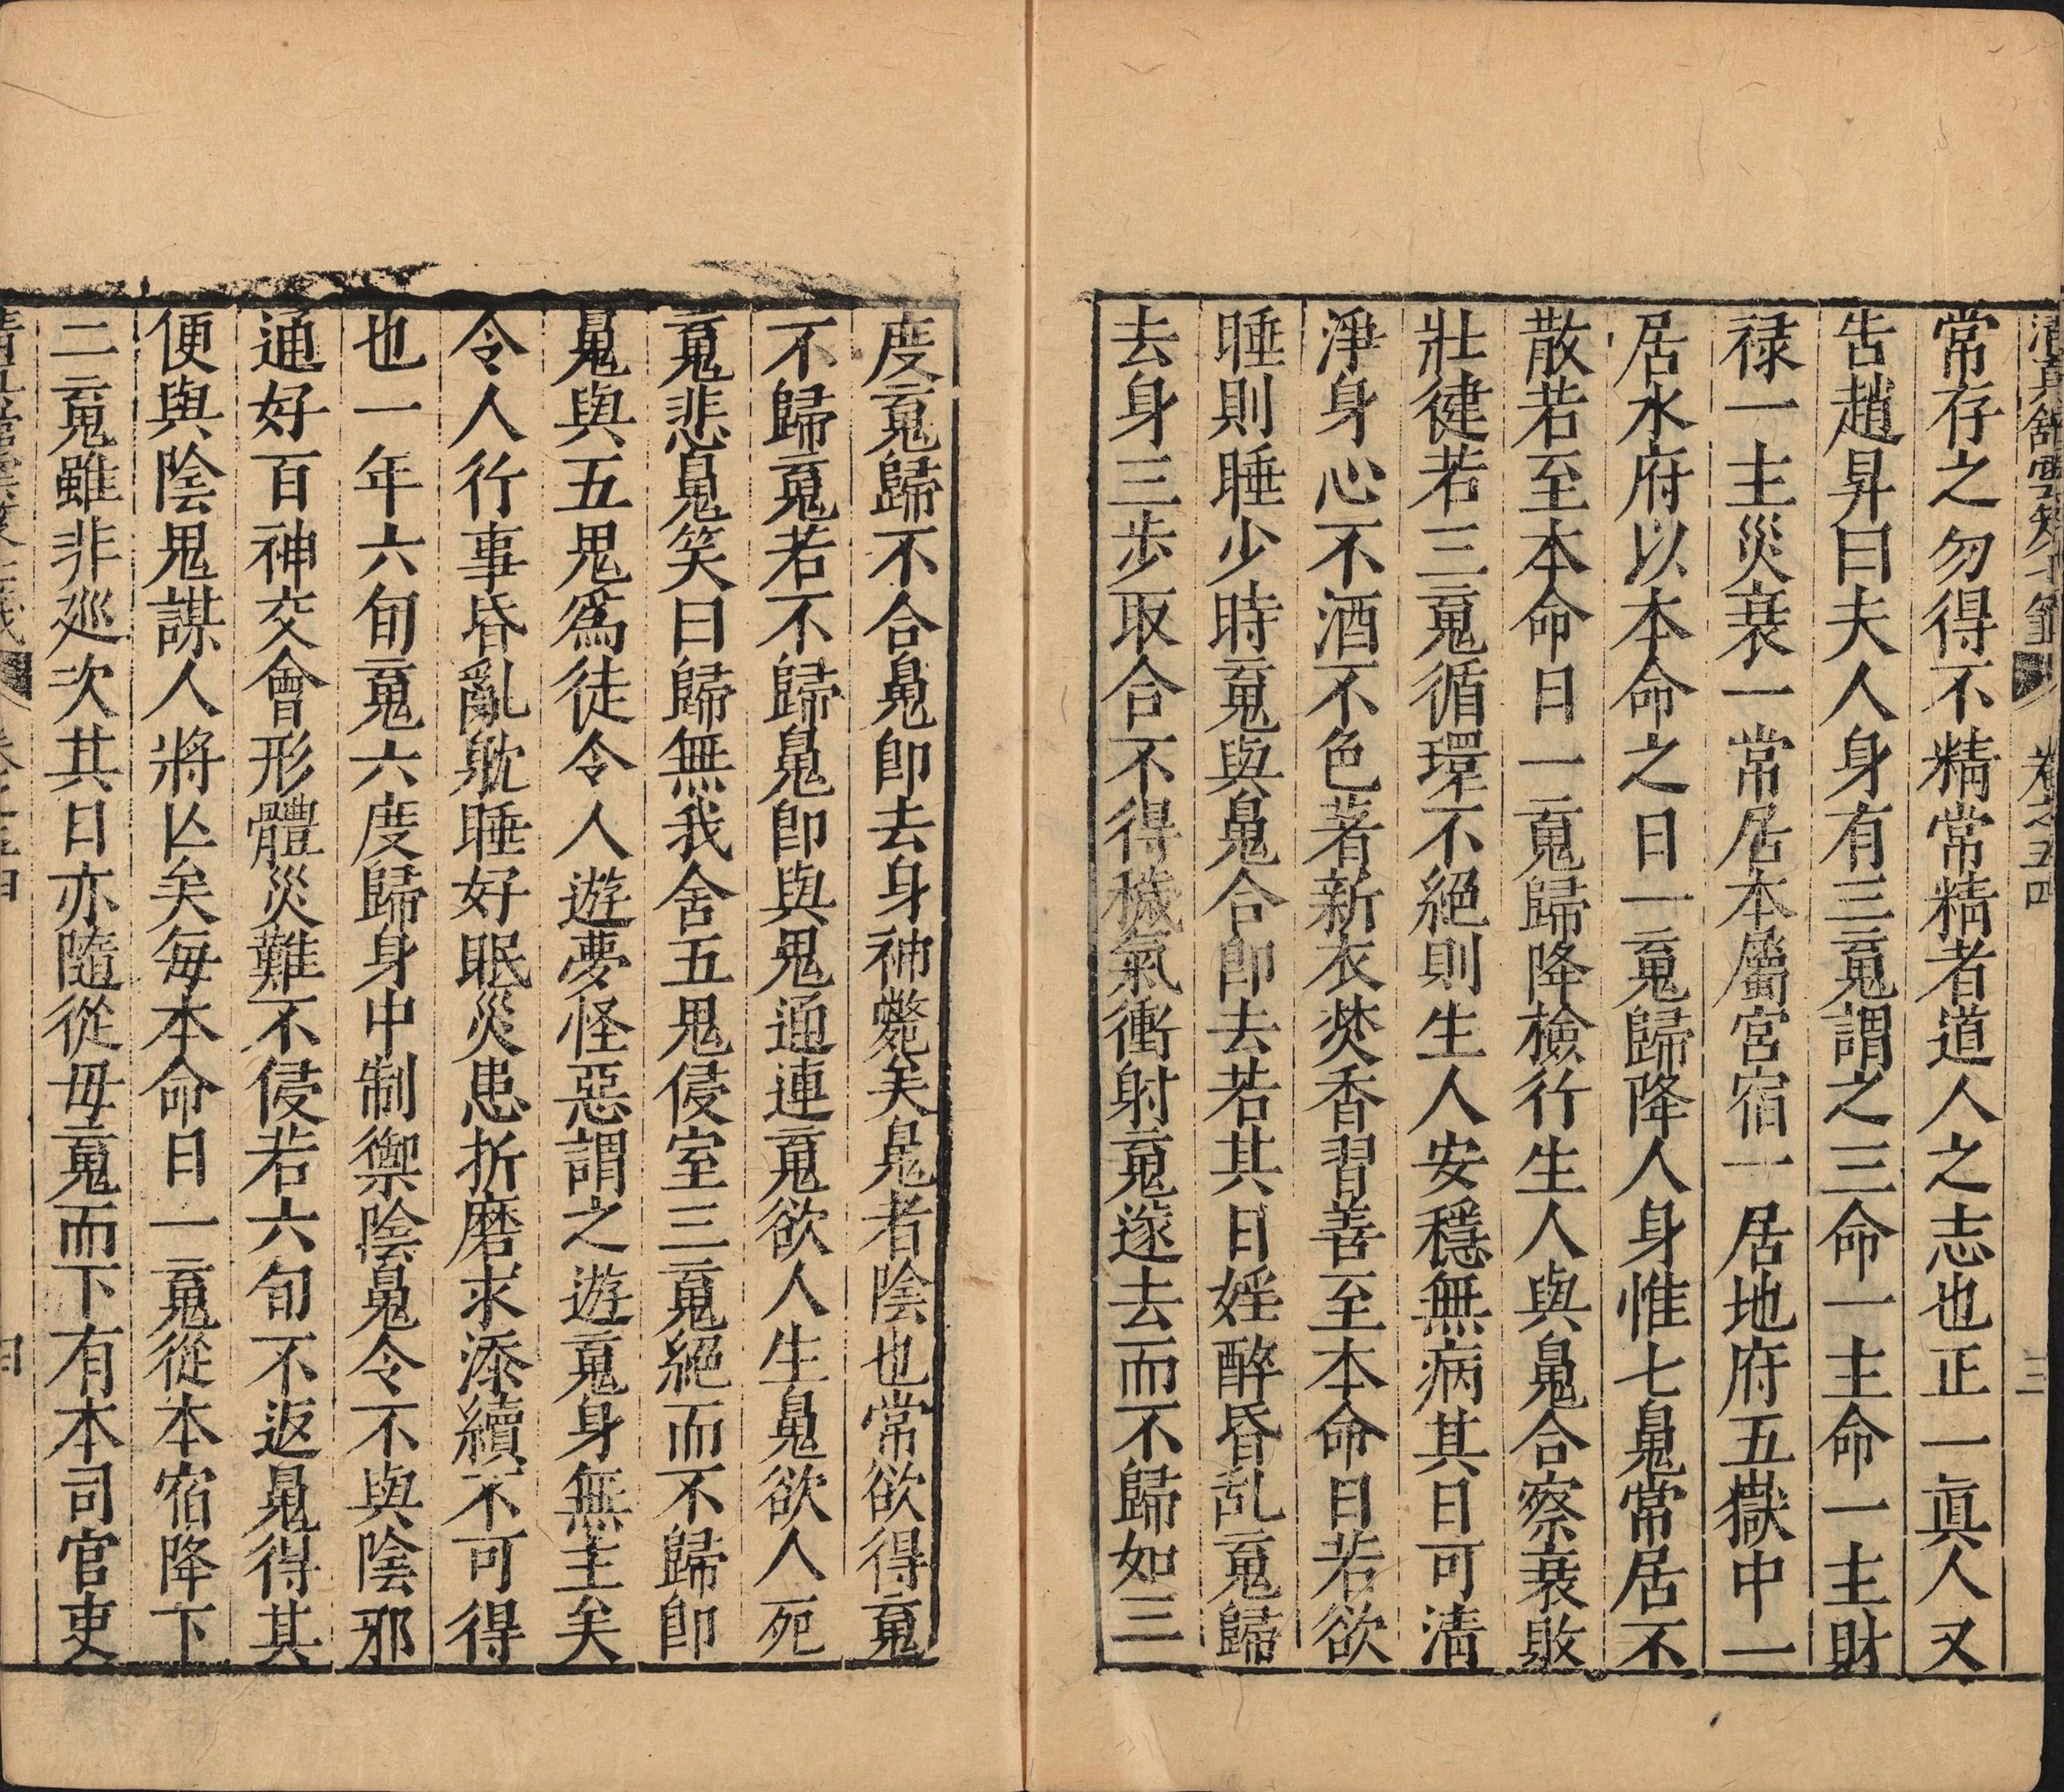 常存之勿得不精常精者道人之志也正一眞人又
告趙昇曰夫人身有三䰟謂之三命一主命一主財
禄一主災衰一常居本屬宮宿一居地府五嶽中一
居水府以本命之日一䰟歸降人身惟七鬽常居不
散若至本命日一䰟歸降檢行生人與鬽合察衰敗
壯健若三䰟循環不絕則生人安穩無病其日可清
淨身心不酒不色著新衣焚香習善至本命日若欲
睡則睡少時䰟與鬽合即去若其日婬醉昏乱䰟歸
去身三步取合不得穢氣衝射䰟遂去而不歸如三
度䰟歸不合鬽即去身神斃矣鬽者陰也常欲得䰟
不歸䰟若不歸鬽即與鬼通連䰟欲人生鬽欲人死
䰟悲鬽笑曰歸無我舍五鬼侵室三䰟絕而不歸即
鬽與五鬼為徒令人遊夢怪惡謂之遊䰟身無主矣
令人行事昏亂躭睡好眠災患折磨求添續不可得
也一年六旬䰟六度歸身中制禦陰鬽令不與陰邪
通好百神交會形體災難不侵若六旬不返鬽得其
便與陰鬼謀人將亾矣每本命日一䰟從本宿降下
二䰟雖非巡次其日亦隨從毋䰟而下有本司官吏